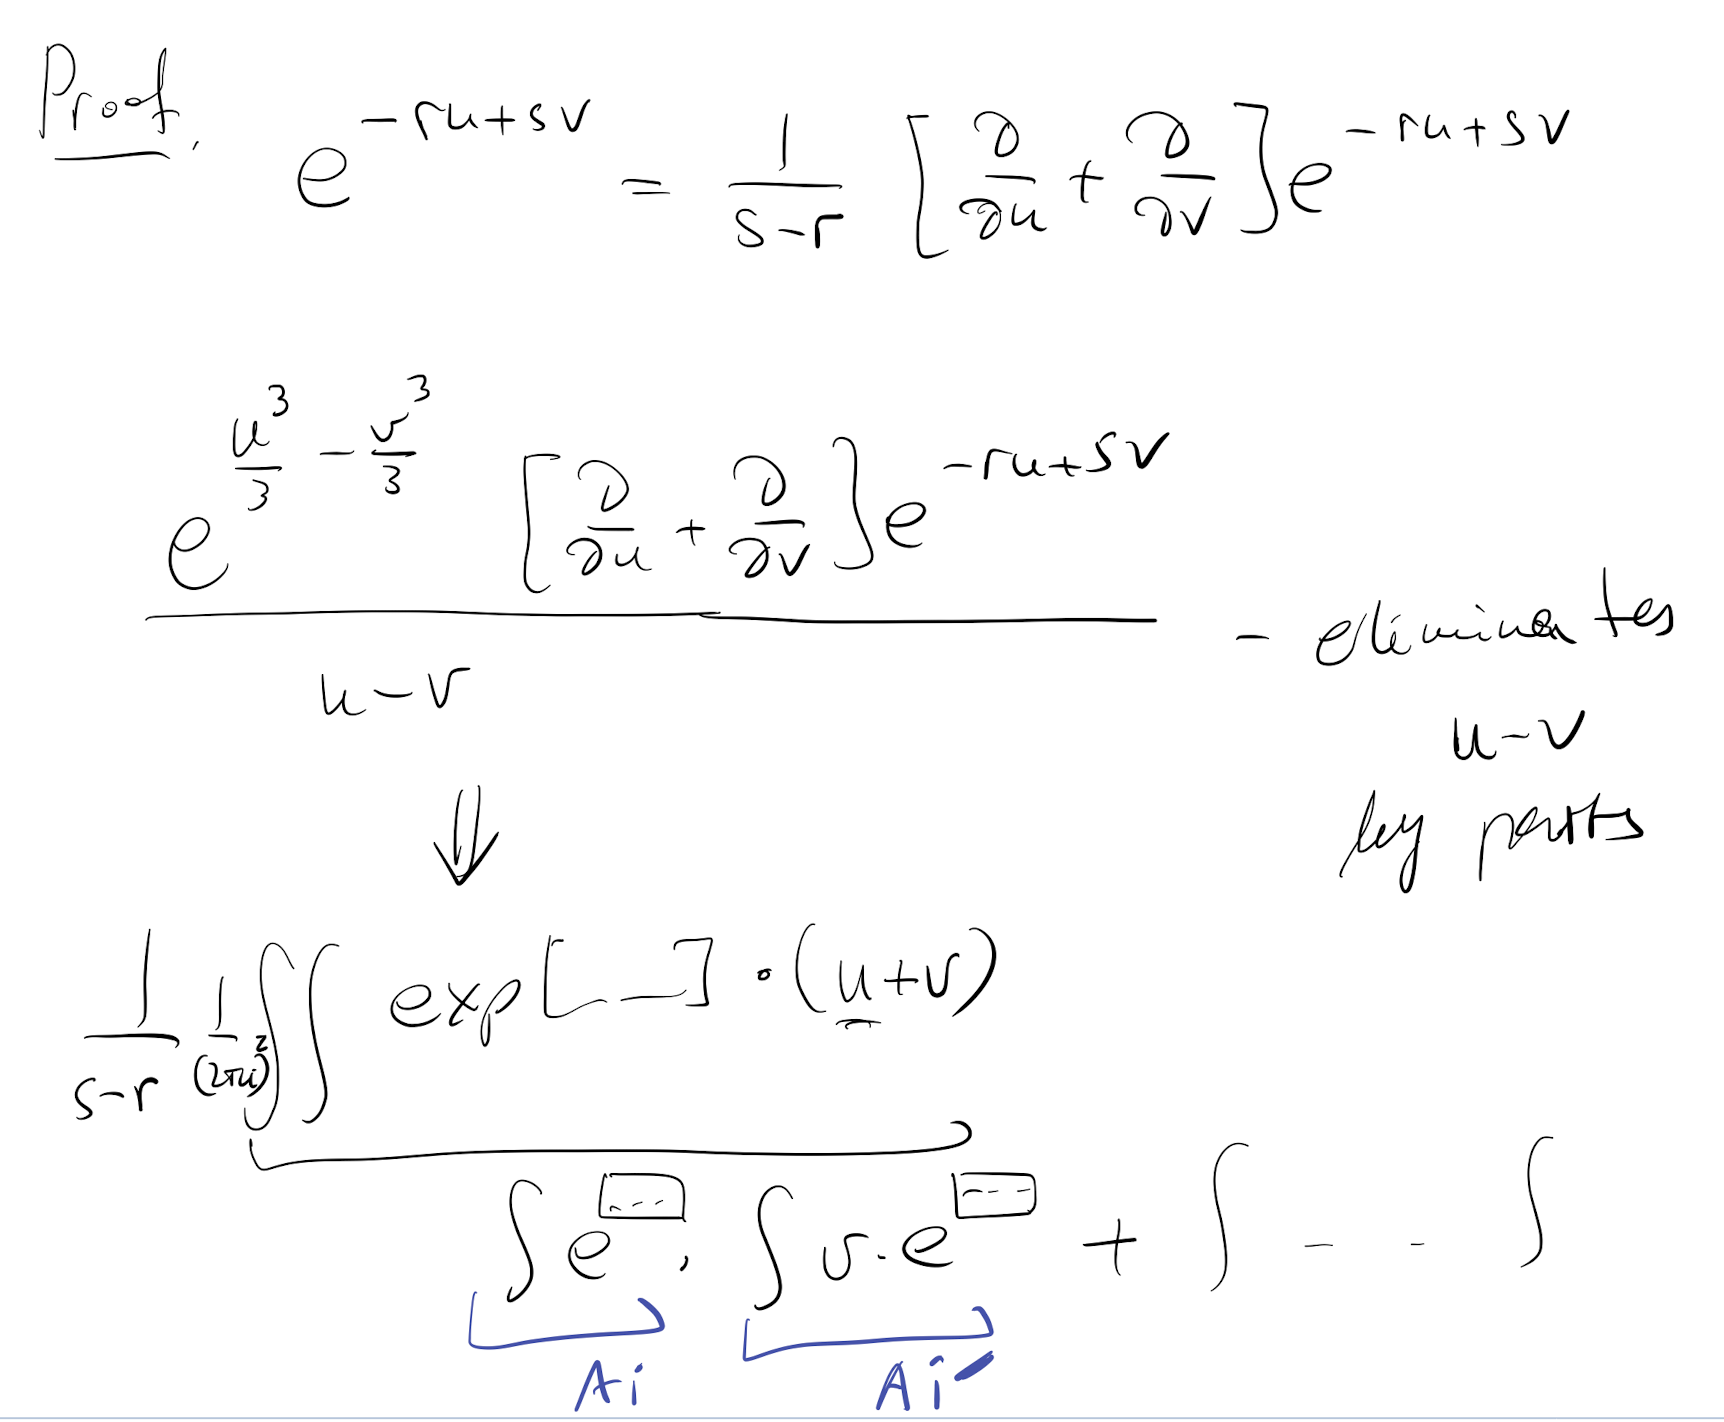 Proof. e^{-ru+sv} = \frac{1}{s-r} [\frac{∂}{∂u} + \frac{∂}{∂v}] e^{-ru+sv}
\frac{e^{\frac{u^3}{3} - \frac{v^3}{3}} [\frac{∂}{∂u} + \frac{∂}{∂v}] e^{-ru+sv}}{u-v} - eliminates
u-v
by parts
⇓
\frac{1}{s-r} \frac{1}{(2πi)^2} ∫∫ exp[...] · (u+v)
∫ e^{[---]} · ∫ v·e^{[---]} + ∫ - - ∫
Ai Ai'